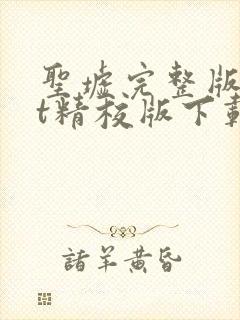 聖墟完整版
t精校版下載
諸羊黃昏